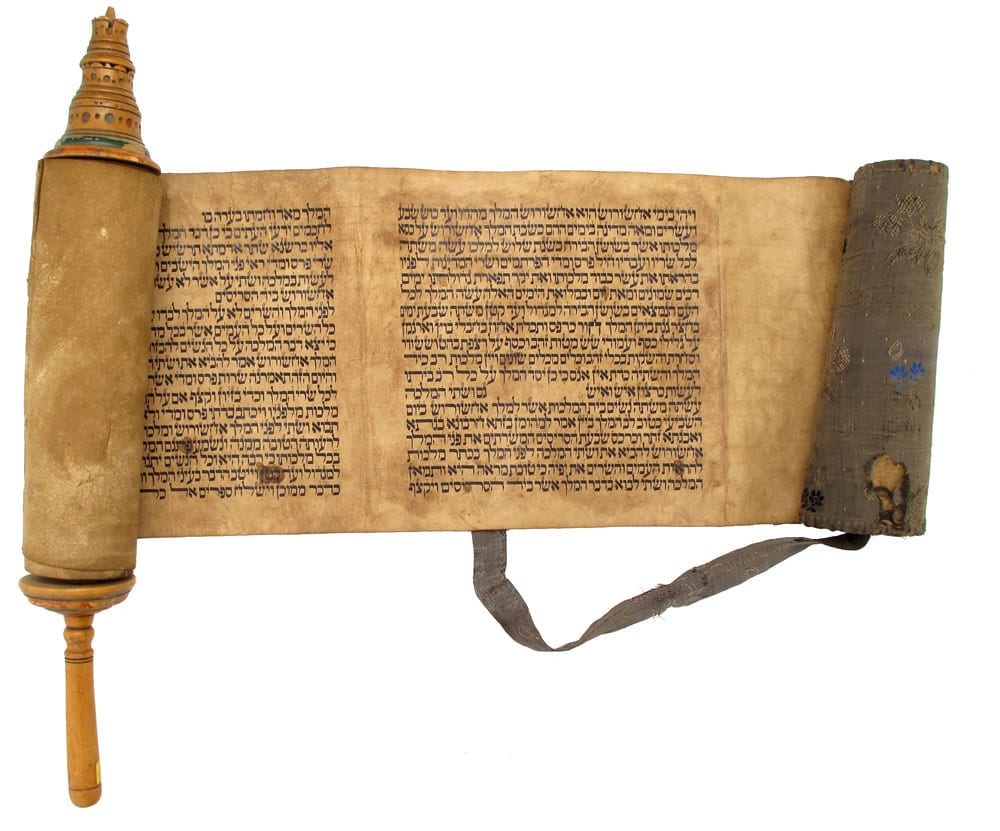 ויהי בימי אחשורוש הוא אחשורוש המלך מהדו ועד כוש שבע
ועשרים ומאה מדינה בימים ההם כשבת המלך אחשורוש על כסא
מלכותו אשר בשושן הבירה בשנת שלוש למלכו עשה משתה
לכל שריו ועבדיו חיל פרס ומדי הפרתמים ושרי המדינות לפניו
בהראתו את עשר כבוד מלכותו ואת יקר תפארת גדולתו ימים
רבים שמונים ומאת יום ובמלואת הימים האלה עשה המלך לכל
העם הנמצאים בשושן הבירה למגדול ועד קטן משתה שבעת ימים
בחצר גנת ביתן המלך חור כרפס ותכלת אחוז בחבלי בוץ וארגמן
על גלילי כסף ועמודי שש מטות זהב וכסף על רצפת בהט ושש
ודר וסחרת והשקות בכלי זהב וכלים מכלים שונים ויין מלכות רב כיד
המלך והשתיה כדת אין אנס כי כן יסד המלך על כל רב ביתו
לעשות כרצון איש ואיש גם ושתי המלכה
עשתה משתה נשים בית המלכות אשר למלך אחשורוש ביום
השביעי כטוב לב המלך ביין אמר למהומן בזתא חרבונא בגתא
ואבגתא זתר וכרכס שבעת הסריסים המשרתים את פני המלך
אחשורוש להביא את ושתי המלכה לפני המלך בכתר מלכות
להראות העמים והשרים את יפיה כי טובת מראה היא ותמאן
המלכה ושתי לבוא בדבר המלך אשר ביד הסריסים ויקצף
המלך מאד וחמתו בערה בו
לחכמים ידעי העתים כי כן דבר המלך
אליו כרשנא שתר אדמתא
שרי פרס ומדי ראי פני המלך הישבים
לעשות במלכה ושתי על אשר לא עשתה
אחשורוש ביד הסריסים
לפני המלך והשרים לא על המלך לבדו
כל השרים ועל כל העמים אשר בכל
כי יצא דבר המלכה על כל הנשים
המלך אחשורוש אמר להביא את ושתי
והיום הזה תאמרנה שרות פרס ומדי אשר
לכל שרי המלך וכדי בזיון וקצף אם על
מלכות מלפניו ויכתב בדתי פרס ומדי ולא
תבוא ושתי לפני המלך
לרעותה הטובה ממנה ונשמע
בכל מלכותו כי רבה היא וכל הנשים
למגדול ועד קטן וייטב הדבר בעיני המלך
כדבר ממוכן וישלח ספרים אל כל